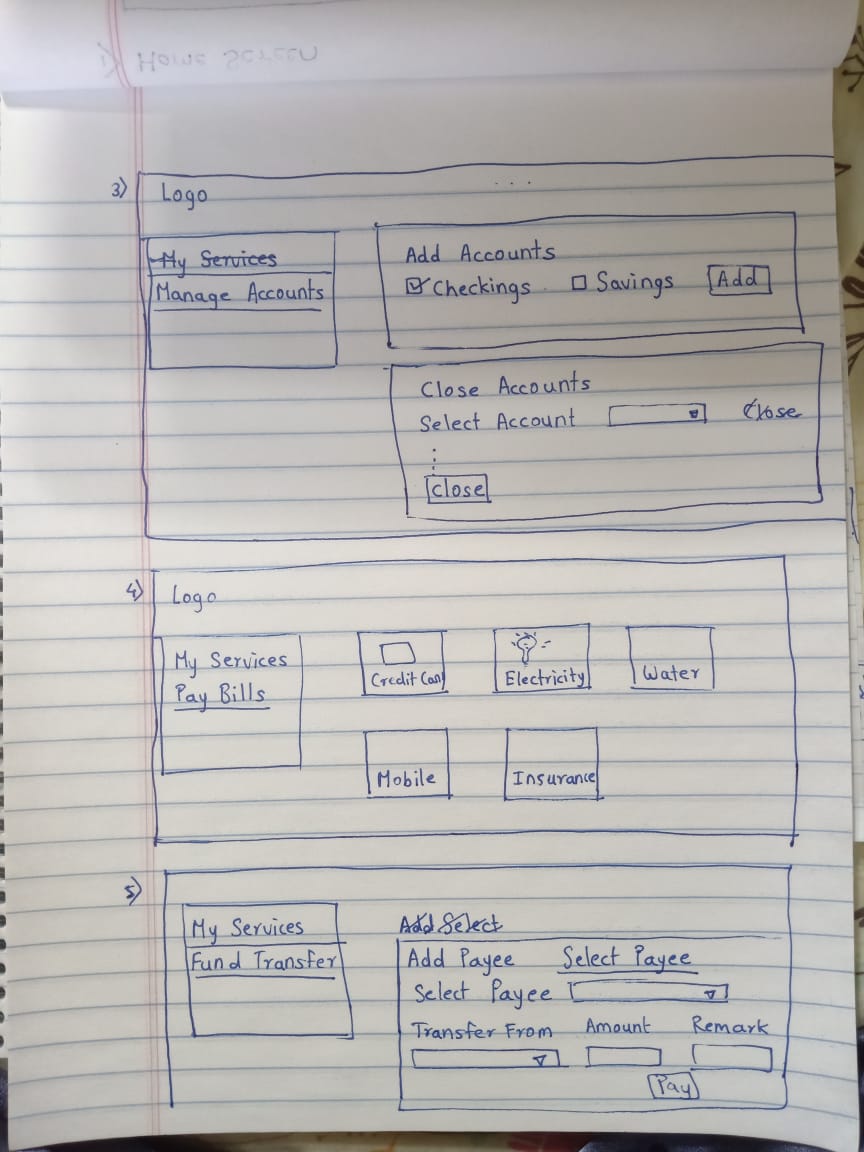 1) Home Screen
3) Logo
...
My Services
Manage Accounts
Add Accounts
Checkings Savings Add
Close Accounts
Select Account Close
Close
4) Logo
My Services
Pay Bills
Credit Card
Electricity
Water
Mobile
Insurance
5)
My Services
Fund Transfer
Add Select
Add Payee Select Payee
Select Payee
Transfer From Amount Remark
Pay